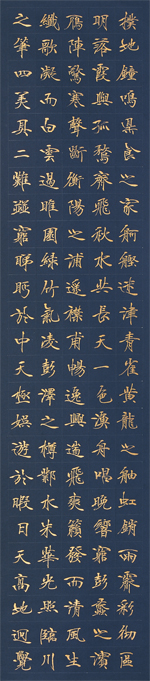 撲地鐘鳴鼎食之家舸艦迷津青雀黃龍之舳虹銷雨霽彩徹區
明落霞與孤鶩齊飛秋水共長天一色漁舟唱晚響窮彭蠡之濱
鴈陣驚寒聲斷衡陽之浦遙襟甫暢逸興遄飛爽籟發而清風生
纖歌凝而白雲遏睢園綠竹氣凌彭澤之樽鄴水朱華光照臨川
之筆四美具二難竝窮睇眄於中天極娛遊於暇日天高地迥覺